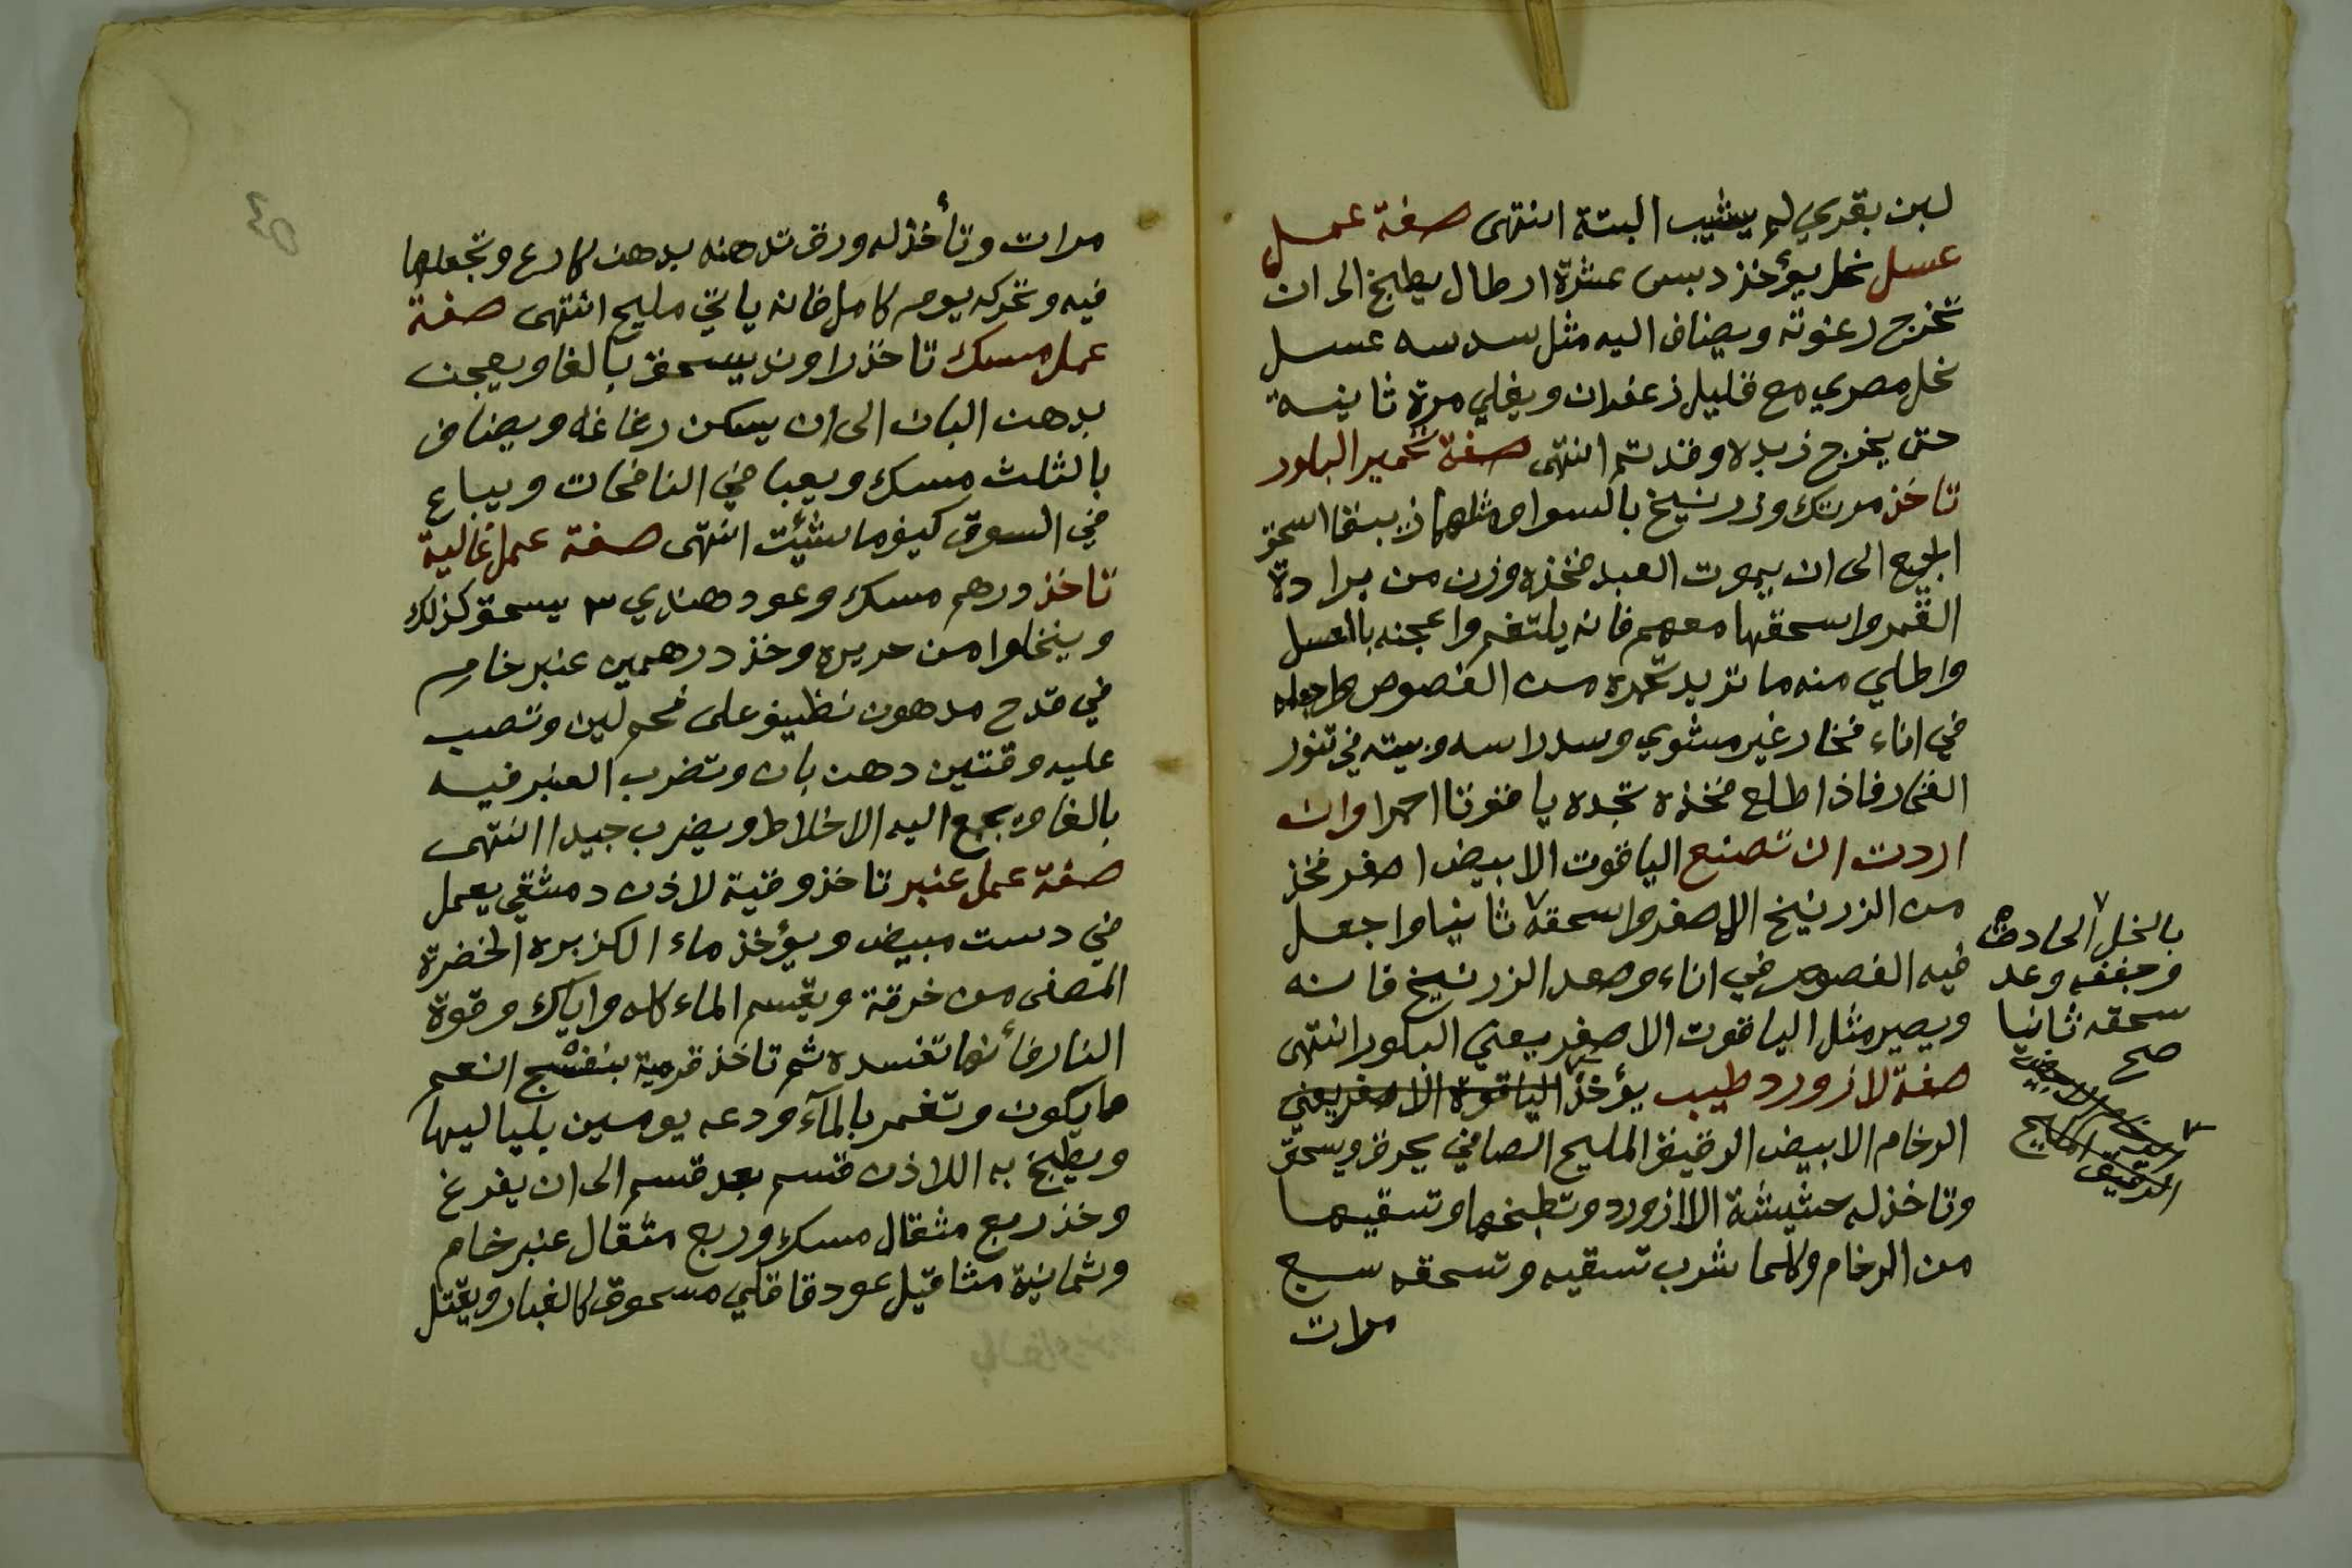 لبن بقري لم يشيب البتة انتهى صفة عمل
عسل نحل يؤخذ دبس عشرة ارطال يطبخ الى ان
تخرج رغوته ويضاف اليه مثل سدسه عسل
نحل مصري مع قليل زعفران ويغلي مرة ثانية
حتى يخرج زبده وقد تم انتهى صفة تحمير البلور
تاخذ مرتك وزرنيخ بالسوا ومثلهما زيبقا اسحق
الجميع الى ان يموت العبد فخذه وزن من برادة
القمر واسحقها معهم فانه يلتغم واعجنه بالعسل
واطلي منه ما تريد تحمره من الفصوص واجعله
في اناء فخار غير مشوي وسد راسه وبيته في تنور
الفخار فاذا طلع فخذه تجده ياقوتا احمرا وان
اردت ان تصنع الياقوت الابيض اصفر فخذ
من الزرنيخ الاصفر واسحقه ثانيا واجعل
فيه الفصوص في اناء وصعد الزرنيخ فانه
ويصير مثل الياقوت الاصفر يعني البلور انتهى
صفة لازورد طيب يؤخذ الياقوة الاصفر يعني
الرخام الابيض الرقيق المليح الصافي يحرق ويسحق
وتاخذ له حشيشة الاازورد وتطبخها وتسقيها
من الرخام وكلما شرب تسقيه وتسحقه سبع
مرات
بالخل الحادق
وجففه وعد
سحقه ثانيا
صح
الرخام الابيض
الرقيق المليح
مرات وتأخذ له ورق تدهنه بدهن كارع وتجعلها
فيه وتحركه يوم كامل فانه ياتي مليح انتهى صفة
عمل مسك تاخذ راوند يسحق بالغا ويعجن
بدهن البان الى ان يسكن رغاغه ويضاف
بالثلث مسك ويعبا في النافحات ويباع
في السوق كيف ما شئت انتهى صفة عمل غالية
تاخذ درهم مسك وعود هندي ٣ يسحق كذلك
وينخلوا من حريره وخذ درهمين عنبر خام
في قدح مدهون نظيف على فحم لين وتصب
عليه وقتين دهن بان وتضرب العنبر فيه
بالغا ويجمع اليه الاخلاط ويضرب جيدا انتهى
صفة عمل عنبر تاخذ وقية لاذن دمشقي يعمل
في دست مبيض ويؤخذ ماء الكزبره الخضرة
المصفى من خرقة ويقسم الماء كله واياك وقوة
النار فأنها تفسده ثم تاخذ قرمية بنفسج انعم
ما يكون وتغمر بالمآء ودعه يومين بلياليها
ويطبخ به اللاذن قسم بعد قسم الى ان يفرغ
وخذ ربع مثقال مسك وربع مثقال عنبر خام
وثمانية مثاقيل عود قاقلي مسحوق كالغبار ويقتل